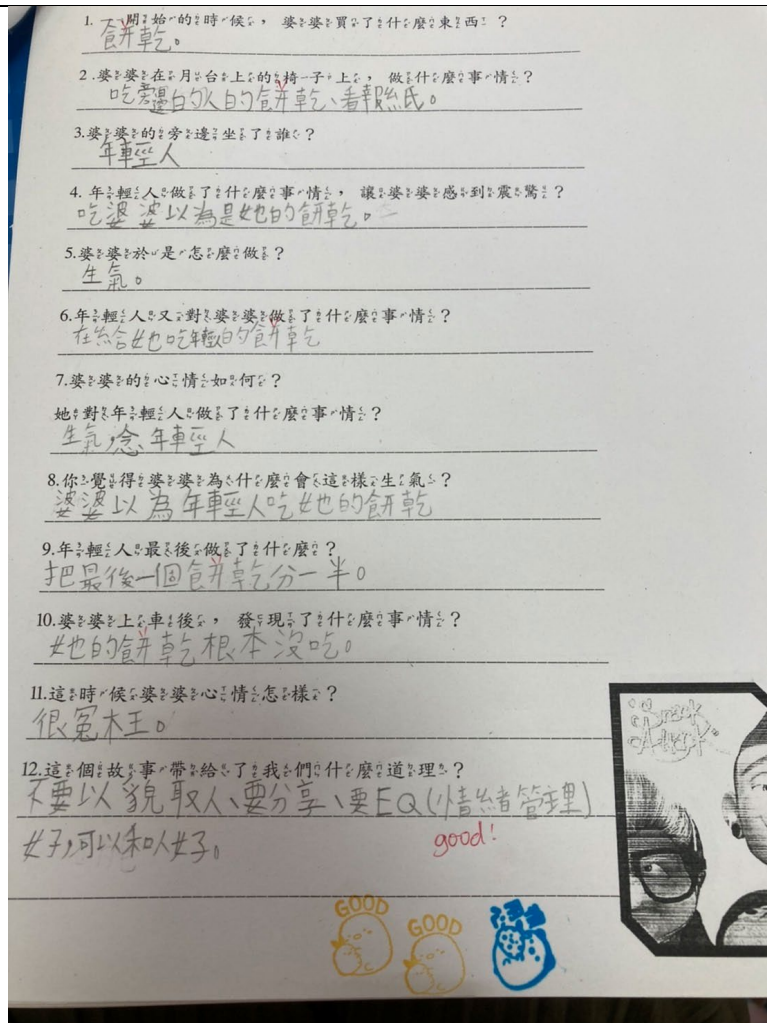 1. 一開始的時候，婆婆買了什麼東西？
餅乾。
2.婆婆在月台上的椅子上，做什麼事情？
吃旁邊的人的餅乾、看報紙。
3.婆婆的旁邊坐了誰？
年輕人
4. 年輕人做了什麼事情，讓婆婆感到震驚？
吃婆婆以為是她的餅乾。
5.婆婆於是怎麼做？
生氣。
6.年輕人又對婆婆做了什麼事情？
在給她吃年輕人的餅乾
7.婆婆的心情如何？
她對年輕人做了什麼事情？
生氣，念年輕人
8.你覺得婆婆為什麼會這樣生氣？
婆婆以為年輕人吃她的餅乾
9.年輕人最後做了什麼？
把最後一個餅乾分一半。
10.婆婆上車後，發現了什麼事情？
她的餅乾根本沒吃。
11.這時候婆婆心情怎樣？
很冤枉。
12.這個故事帶給了我們什麼道理？
不要以貌取人、要分享、要EQ(情緒管理)
好，可以和人好。
good!
GOOD
GOOD
Snack Attack